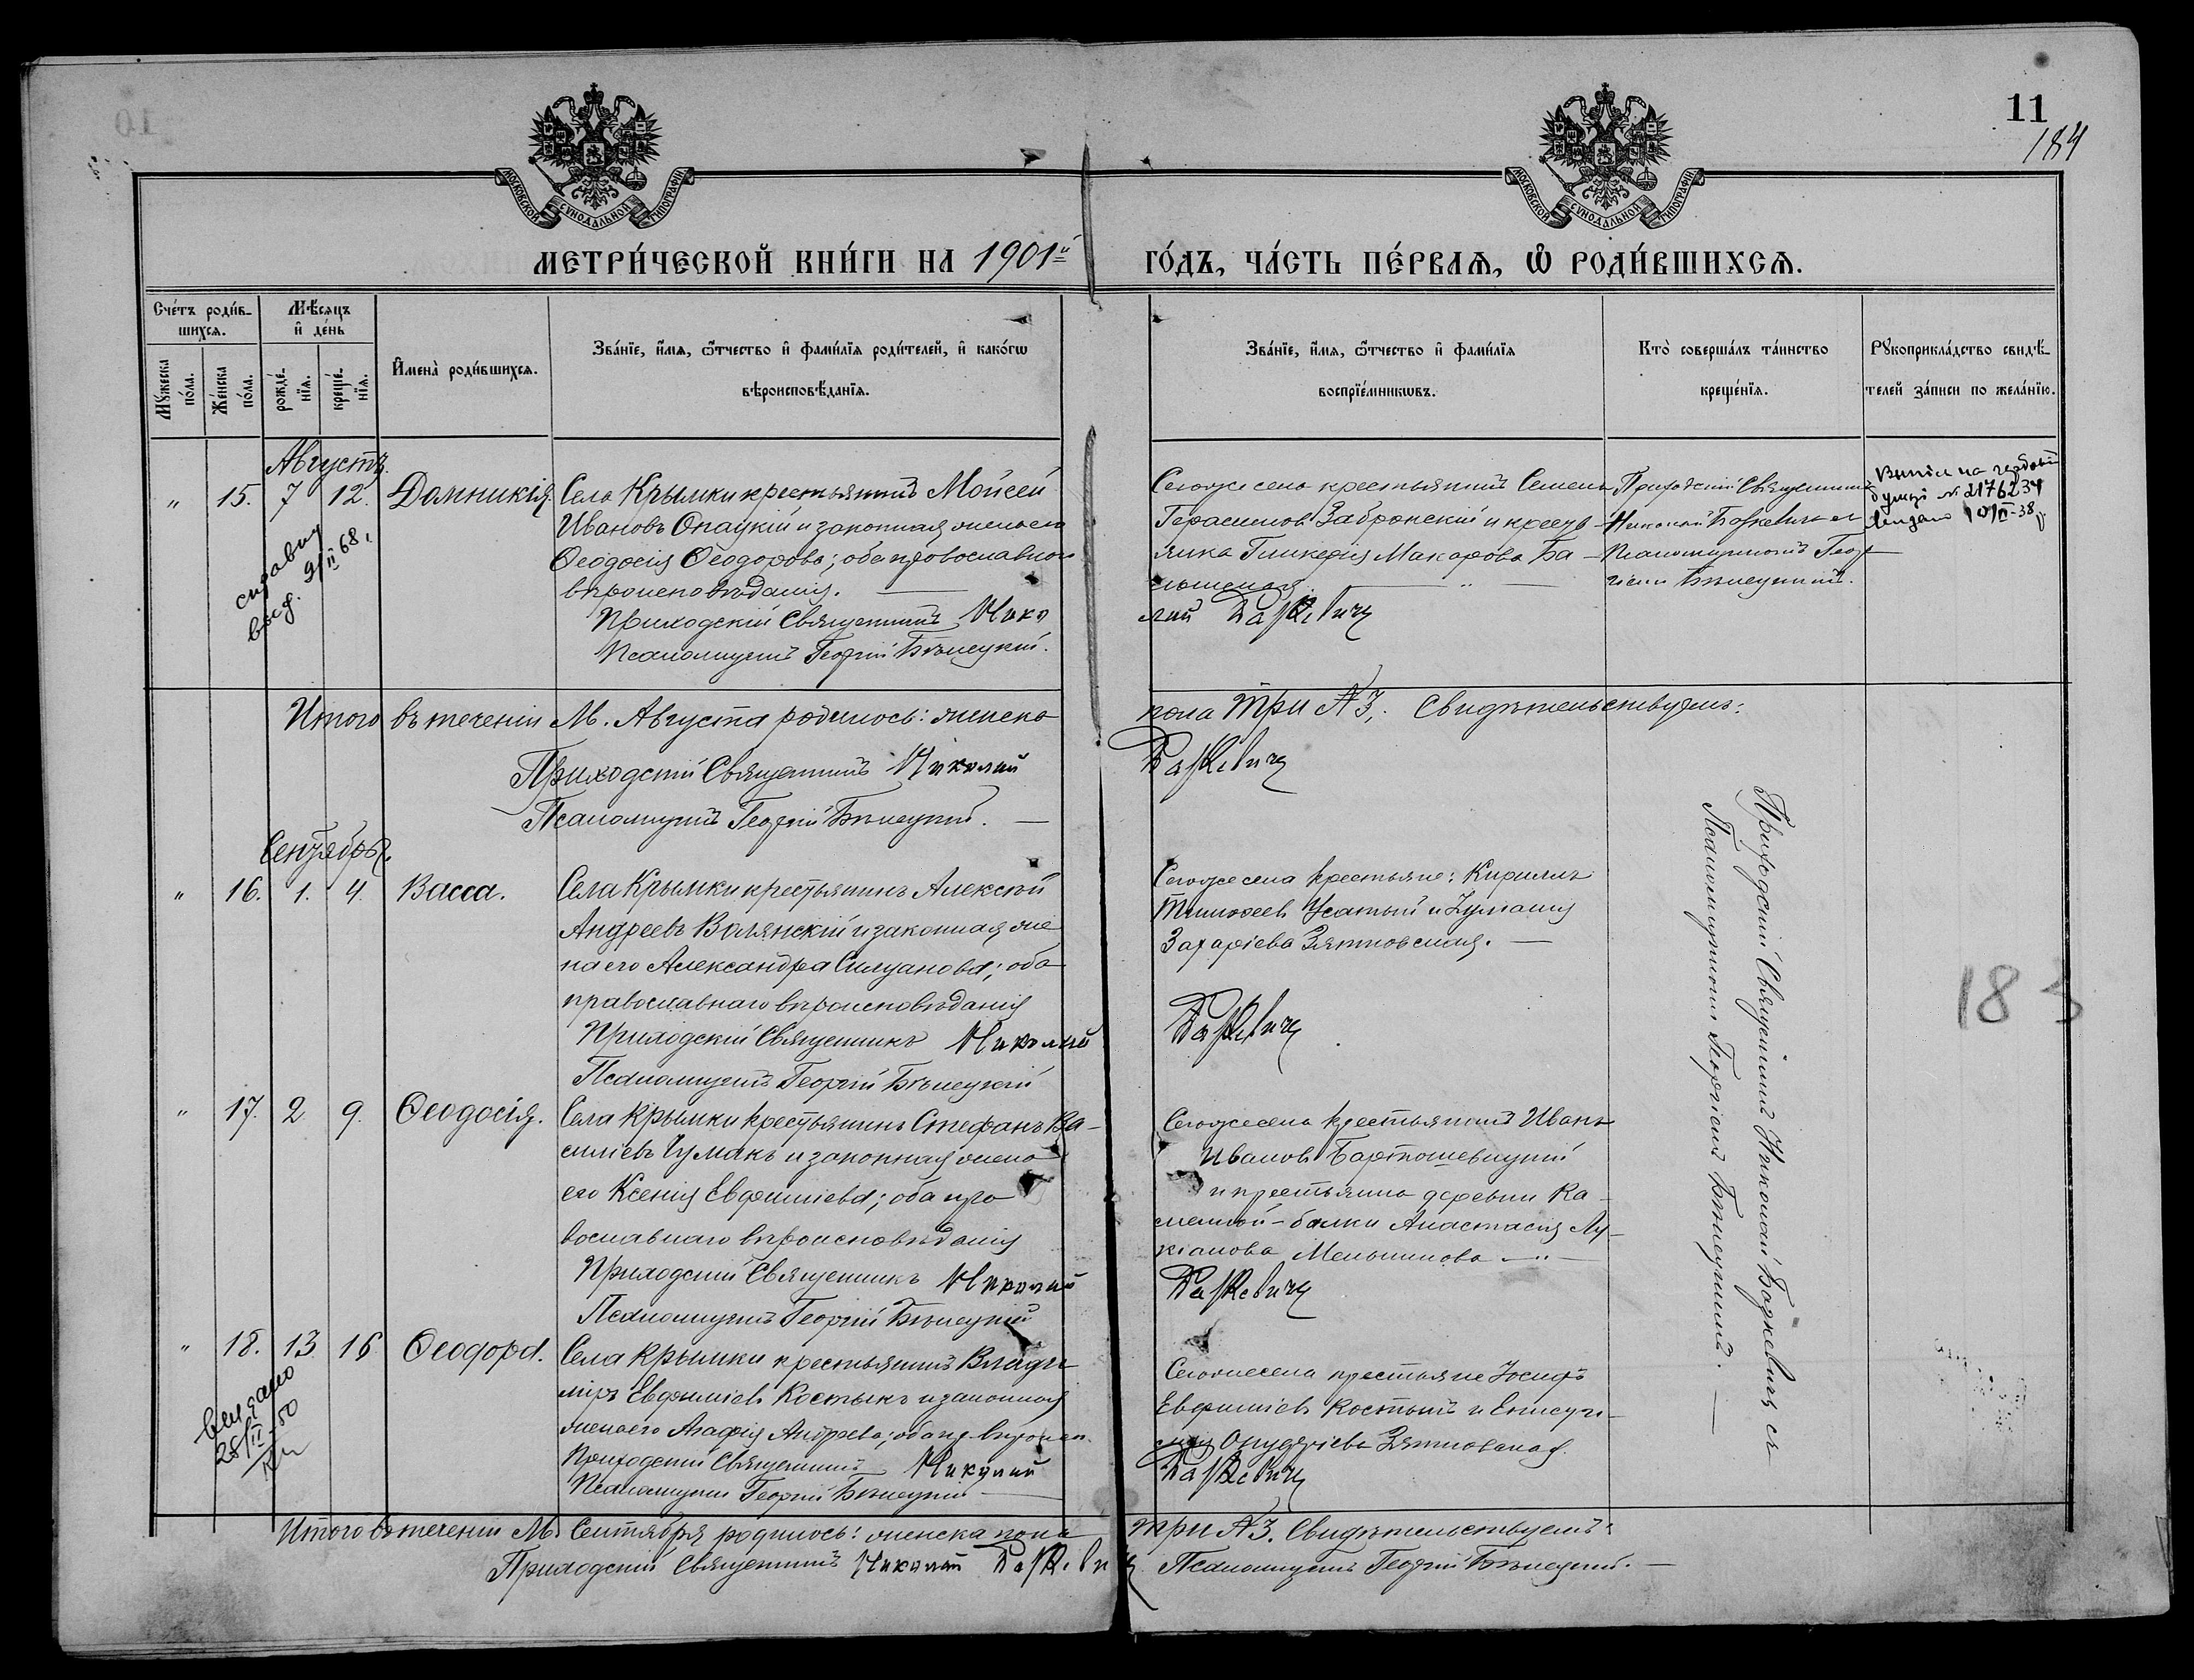 11
184
МОСКОВСКОЙ СѴНОДАЛЬНОЙ ТИПОГРАФІИ
МОСКОВСКОЙ СѴНОДАЛЬНОЙ ТИПОГРАФІИ
МЕТРИ́ЧЕСКОЙ КНИ́ГИ НА 1901й ГО́ДЪ, ЧА́СТЬ ПЕ́РВАѦ, Ѡ РОДИ́ВШИХСѦ.
Сче́тъ роди́в-
шихсѧ.
Мꙋжеска по́ла.
Же́нска по́ла.
Мѣ́сѧцъ
и҆ де́нь
рожде́-
нїѧ.
креще́-
нїѧ.
И҆мена̀ роди́вшихсѧ.
Зва́нїе, и҆́мѧ, ѻ҆́тчество и҆ фамі́лїѧ роди́телей, и҆ како́гѡ
вѣроисповѣ́данїѧ.
Зва́нїе, и҆́мѧ, ѻ҆́тчество и҆ фамі́лїѧ
воспрїе́мникѡвъ.
Кто̀ соверша́лъ та́инство
креще́нїѧ.
Рꙋкоприкла́дство свидѣ́-
телей за́писи по жела́нїю.
Августъ.
" 15. 7 12. Домникія.
Села Крымки крестьянинъ Мойсей
Ивановъ Опацкій и законная жена его
Ѳеодосія Ѳеодорова; оба православнаго
вѣроисповѣданія.
Приходскій Священникъ Нико
Псаломщикъ Георгій Бѣлецкій.
справка
9/II 68
Сего же села крестьянинъ Семенъ
Герасимовъ Забронскій и крестья-
нка Гликерія Макарова Ба-
лай Бажкевичъ
Приходскій Священникъ
Николай Бажкевичъ съ
Псаломщикомъ Геор-
гіемъ Бѣлецкимъ.
бумазі № 2176234
видано 10/II-38
Итого въ теченіи М. Августа родилось: женска
пола три №3. Свидѣтельствуемъ:
Приходскій Священникъ Николай Бажкевичъ
Псаломщикъ Георгій Бѣлецкій.
Сентябрь.
" 16. 1. 4. Васса.
Села Крымки крестьянинъ Алексѣй
Андреевъ Волянскій и законная же
на его Александра Силуанова; оба
православнаго вѣроисповѣданія
Приходскій Священникъ Николай
Псаломщикъ Георгій Бѣлецкій
Сего же села крестьяне: Кириллъ
Тимоѳеевъ Усатый и
Захаріева Зятковская.
Бажкевичъ
Приходскій Священникъ Николай Бажкевичъ съ
Псаломщикомъ Георгіемъ Бѣлецкимъ.
183
" 17. 2. 9. Ѳеодосія.
Села Крымки крестьянинъ Стефанъ Ва-
силіевъ Чумакъ и законная жена
его Ксенія Евфиміева; оба пра
вославнаго вѣроисповѣданія
Приходскій Священникъ Николай
Псаломщикъ Георгій Бѣлецкій
Сего же села крестьянинъ Иванъ
Ивановъ Бартошевицкій
и крестьянка деревни Ка-
менной-балки Анастасія Лу-
кіанова Мельникова
Бажкевичъ
" 18. 13 16 Ѳеодора.
Села Крымки крестьянинъ Влади
міръ Евфиміевъ Костыкъ и законная
жена его Агафія Андреева; оба пр. вѣроисп.
Приходскій Священникъ Николай
Псаломщикъ Георгій Бѣлецкій
Видано
28/II 50
Сего же села крестьяне Іосифъ
Евфиміевъ Костыкъ и
Онуфріева Зятковская.
Бажкевичъ
Итого въ теченіи М. Сентября родилось: женска пола три №3. Свидѣтельствуемъ:
Приходскій Священникъ Николай Бажкевичъ Псаломщикъ Георгій Бѣлецкій.